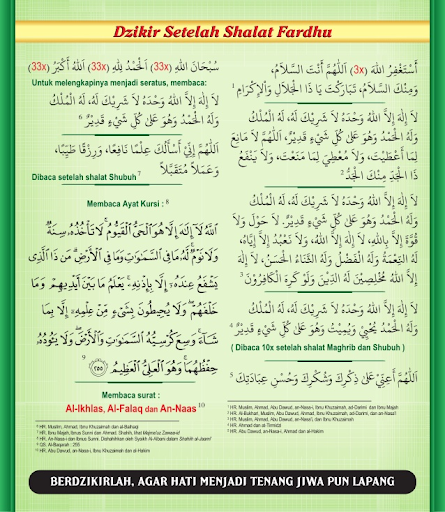 Dzikir Setelah Shalat Fardhu
أَسْتَغْفِرُ اللهَ (3x) اَللَّهُمَّ أَنْتَ السَّلَامُ،
وَمِنْكَ السَّلَامُ، تَبَارَكْتَ يَا ذَا الْجَلَالِ وَالْإِكْرَامِ 1
لَا إِلَهَ إِلَّا اللهُ وَحْدَهُ لَا شَرِيْكَ لَهُ، لَهُ الْمُلْكُ
وَلَهُ الْحَمْدُ وَهُوَ عَلَىٰ كُلِّ شَيْءٍ قَدِيْرٌ، اَللَّهُمَّ لَا مَانِعَ
لِمَا أَعْطَيْتَ، وَلَا مُعْطِيَ لِمَا مَنَعْتَ، وَلَا يَنْفَعُ
ذَا الْجَدِّ مِنْكَ الْجَدُّ 2
لَا إِلَهَ إِلَّا اللهُ وَحْدَهُ لَا شَرِيْكَ لَهُ، لَهُ الْمُلْكُ
وَلَهُ الْحَمْدُ وَهُوَ عَلَىٰ كُلِّ شَيْءٍ قَدِيْرٌ. لَا حَوْلَ وَلَا
قُوَّةَ إِلَّا بِاللهِ، لَا إِلَهَ إِلَّا اللهُ، وَلَا نَعْبُدُ إِلَّا إِيَّاهُ،
لَهُ النِّعْمَةُ وَلَهُ الْفَضْلُ وَلَهُ الثَّنَاءُ الْحَسَنُ، لَا إِلَهَ
إِلَّا اللهُ مُخْلِصِيْنَ لَهُ الدِّيْنَ وَلَوْ كَرِهَ الْكَافِرُوْنَ 3
لَا إِلَهَ إِلَّا اللهُ وَحْدَهُ لَا شَرِيْكَ لَهُ، لَهُ الْمُلْكُ
وَلَهُ الْحَمْدُ يُحْيِيْ وَيُمِيْتُ وَهُوَ عَلَىٰ كُلِّ شَيْءٍ قَدِيْرٌ 4
( Dibaca 10x setelah shalat Maghrib dan Shubuh )
اَللَّهُمَّ أَعِنِّيْ عَلَىٰ ذِكْرِكَ وَشُكْرِكَ وَحُسْنِ عِبَادَتِكَ 5
1 HR. Muslim, Ahmad, Abu Dawud, an-Nasa-i, Ibnu Khuzaimah, ad-Darimi dan Ibnu Majah
2 HR. Al-Bukhari, Muslim, Abu Dawud, Ahmad, Ibnu Khuzaimah, ad-Darimi, dan an-Nasa-i
3 HR. Muslim, Ahmad, Abu Dawud, an-Nasa-i, Ibnu Khuzaimah
4 HR. Ahmad dan at-Tirmidzi
5 HR. Abu Dawud, an-Nasa-i, Ahmad dan al-Hakim
سُبْحَانَ اللهِ (33x) اَلْحَمْدُ لِلَّهِ (33x) اَللهُ أَكْبَرُ (33x)
Untuk melengkapinya menjadi seratus, membaca:
لَا إِلَهَ إِلَّا اللهُ وَحْدَهُ لَا شَرِيْكَ لَهُ، لَهُ الْمُلْكُ
وَلَهُ الْحَمْدُ وَهُوَ عَلَىٰ كُلِّ شَيْءٍ قَدِيْرٌ 6
اَللَّهُمَّ إِنِّيْ أَسْأَلُكَ عِلْمًا نَافِعًا، وَرِزْقًا طَيِّبًا،
وَعَمَلًا مُتَقَبَّلًا
Dibaca setelah shalat Shubuh 7
Membaca Ayat Kursi : 8
اللَّهُ لَا إِلَٰهَ إِلَّا هُوَ الْحَيُّ الْقَيُّومُ لَا تَأْخُذُهُ سِنَةٌ
وَلَا نَوْمٌ لَهُ مَا فِي السَّمَاوَاتِ وَمَا فِي الْأَرْضِ مَنْ ذَا الَّذِي
يَشْفَعُ عِنْدَهُ إِلَّا بِإِذْنِهِ يَعْلَمُ مَا بَيْنَ أَيْدِيهِمْ وَمَا
خَلْفَهُمْ وَلَا يُحِيطُونَ بِشَيْءٍ مِنْ عِلْمِهِ إِلَّا بِمَا
شَاءَ وَسِعَ كُرْسِيُّهُ السَّمَاوَاتِ وَالْأَرْضَ وَلَا يَئُودُهُ
حِفْظُهُمَا وَهُوَ الْعَلِيُّ الْعَظِيمُ ٢٥٥ 9
Membaca surat :
Al-Ikhlas, Al-Falaq dan An-Naas 10
6 HR. Muslim, Ahmad, Ibnu Khuzaimah dan al-Baihaqi
9 HR. Al-Baqarah : 255
10 HR. Abu Dawud, an-Nasa-i, Ibnu Khuzaimah dan al-Hakim
BERDZIKIRLAH, AGAR HATI MENJADI TENANG JIWA PUN LAPANG